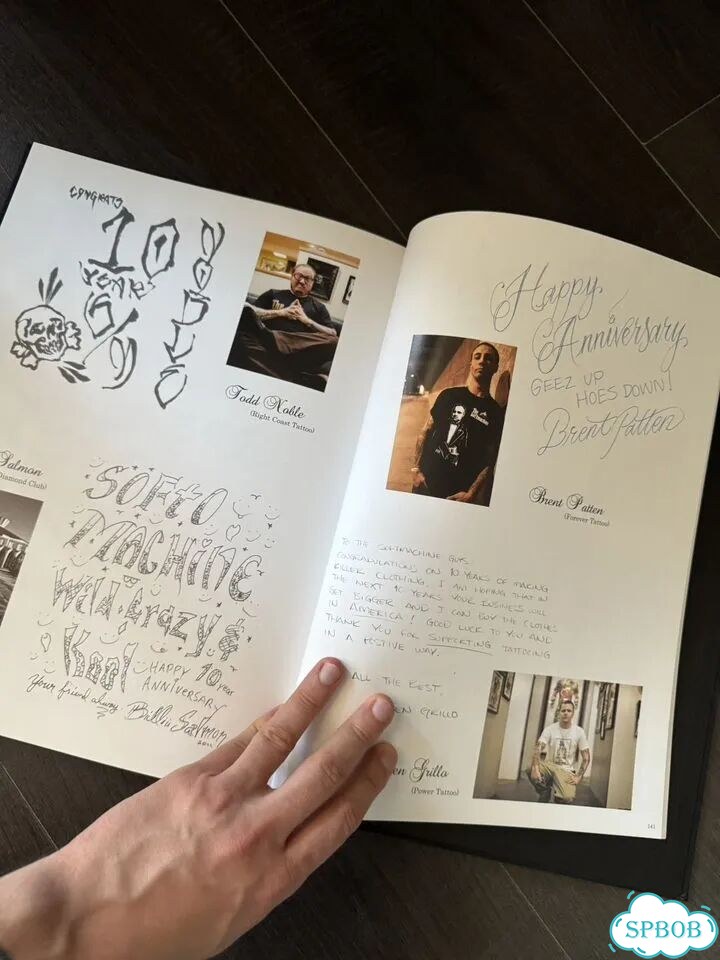 CONGRATS
10
YEARS
Todd Noble
(Right Coast Tattoo)
Salmon
Diamond Club)
SOFTO
MACHINE
Wild Crazy &
Kool
HAPPY 10 YEAR
ANNIVERSARY
Your friend always
2011
Happy
Anniversary
GEEZ UP
HOES DOWN!
Brent Patten
Brent Patten
(Forever Tattoo)
TO THE SOFTMACHINE GUYS.
CONGRADULATIONS ON 10 YEARS OF MAKING
KILLER CLOTHING. I AM HOPING THAT IN
THE NEXT 10 YEARS YOUR BUSINESS WILL
GET BIGGER AND I CAN BUY THE CLOTHES
IN AMERICA! GOOD LUCK TO YOU AND
THANK YOU FOR SUPPORTING TATTOOING
IN A POSITIVE WAY.
ALL THE BEST,
EN GRILLO
en Grillo
(Power Tattoo)
141
SPBOB